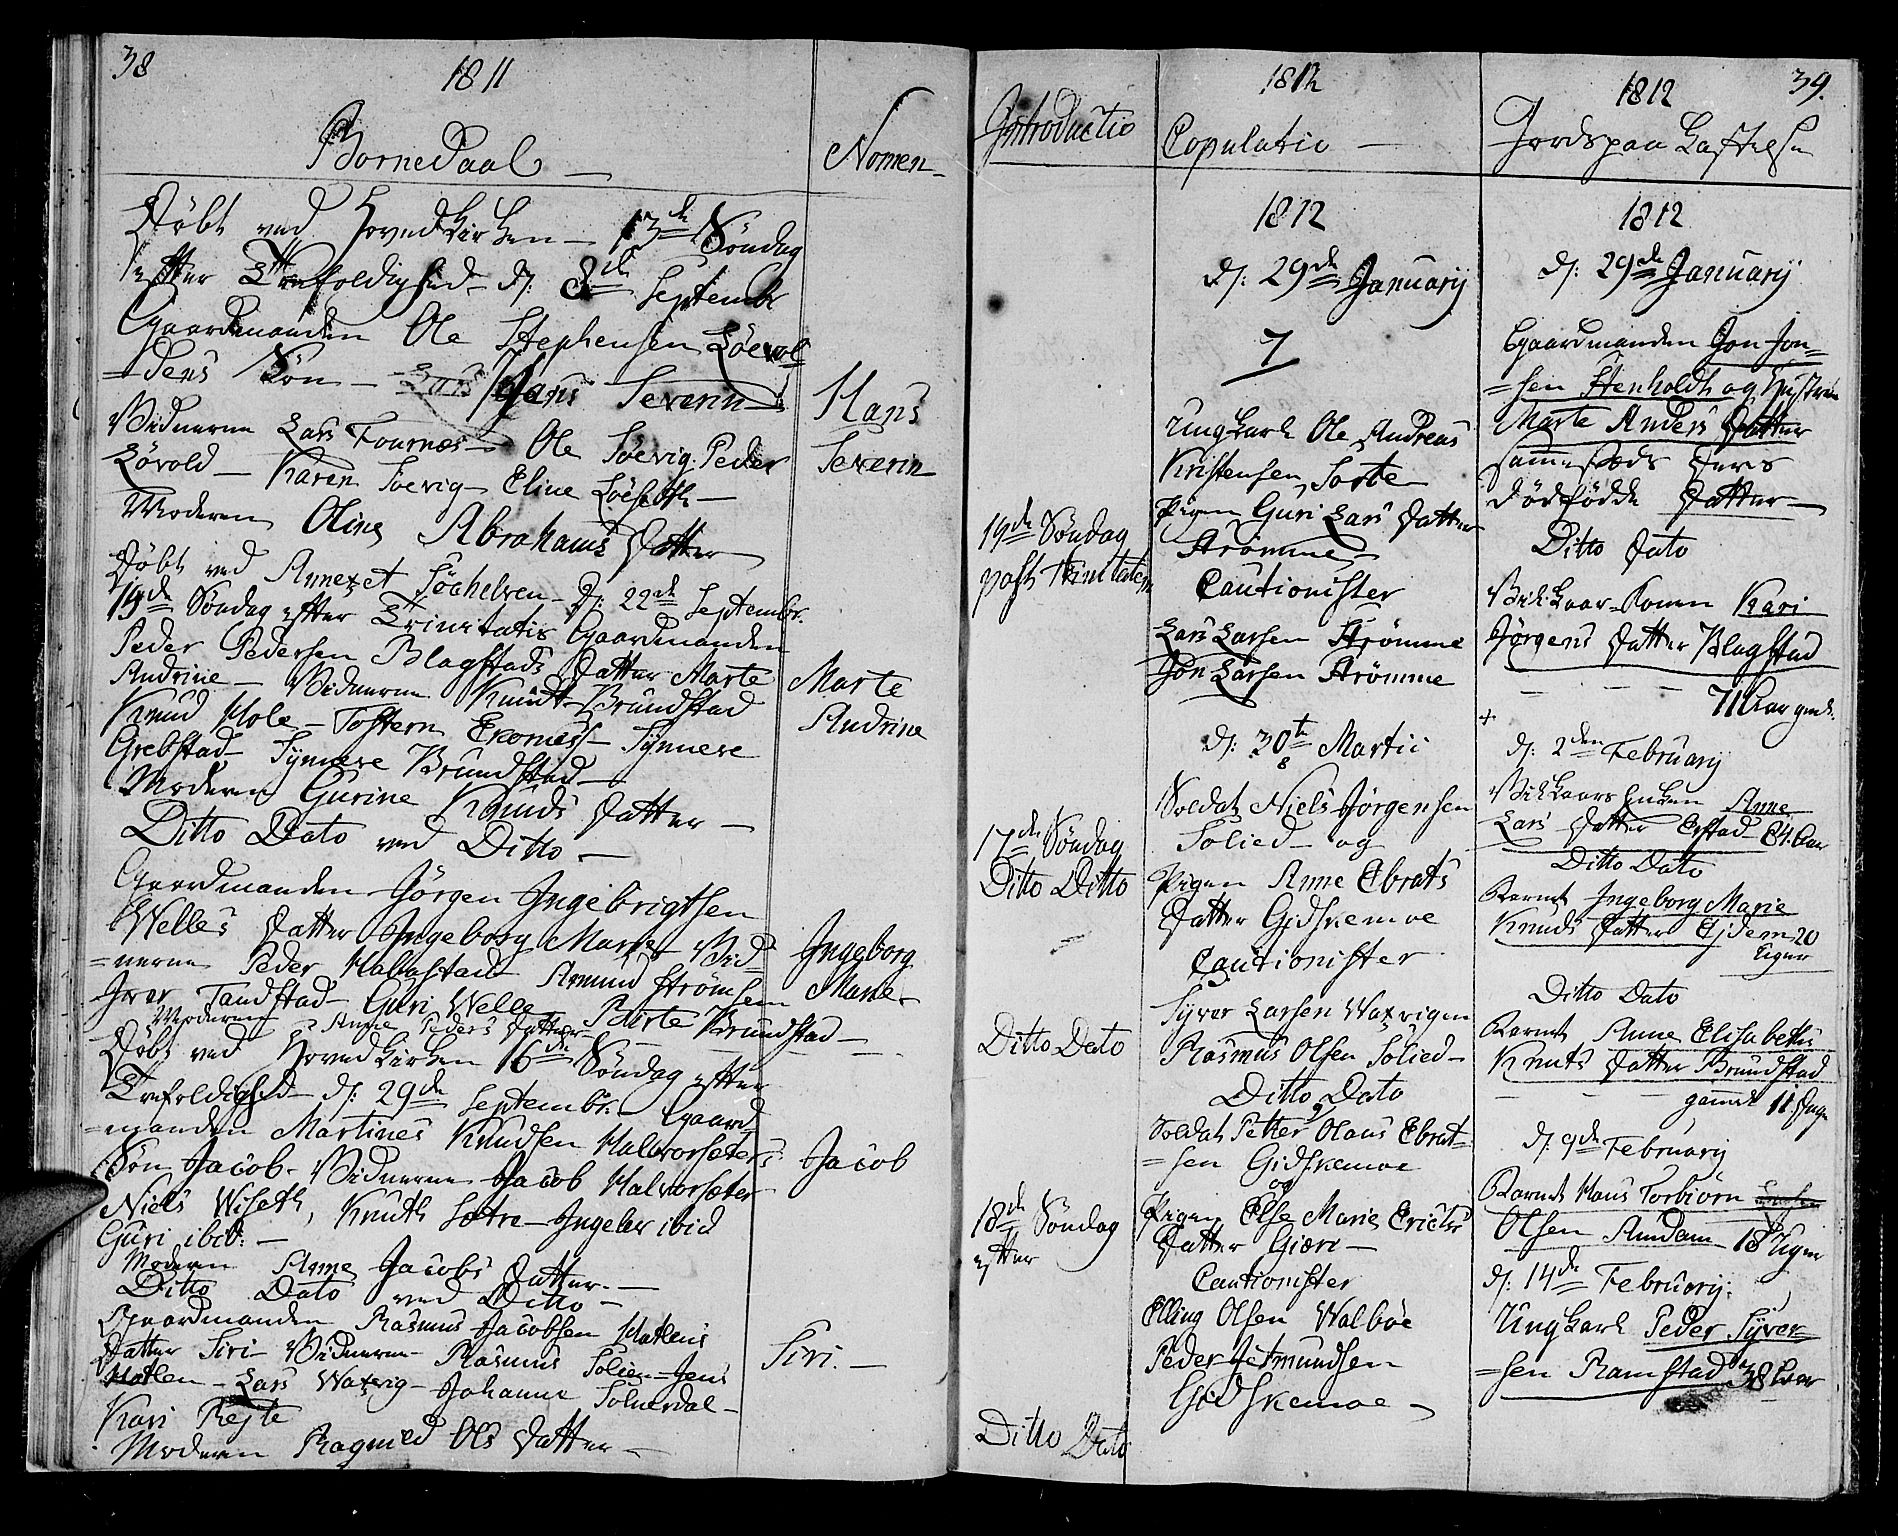 38
1811
Bornedaal
Nomen
Döbt ved Hovedkirken 13de Söndag
efter Trefoldighed d: 8de Septembr
Gaardmanden Ole Stephensen Löevol
=dens Sön Hans Severin
Hans
Vidnerne Lars Fournæs Ole Söevig Peder
Severin
Lövold Karen Soevig Eline Löeseth
Moderen Oline Abrahams Datter
Döbt ved Annexet Söchelven d: 22de Septembr.
19de Söndag efter Trinitatis Gaardmanden
Peder Pedersen Blagstads Datter Marte
Marte
Andrine Vidnerne Knudt Brundstad
Andrine
Knud Hole Tostern Ekornes Synnere
Grebstad Synnere Brundstad
Moderen Gurine Knuds Datter
Ditto Dato ved Ditto
Gaardmanden Jörgen Ingebrigtsen
Welles Datter Ingeborg Marie Vid=
Ingeborg
=nerne Peder Habostad Amund Strömsem
Marie
Iver Tandstad Guri Welle Birte Brundstad
Moderen Anne Peders Datter
Döbt ved Hovedkirken 16de Söndag efter
Trefoldighed d: 29de Septembr. Gaard=
=manden Martines Knudsen Halvorsæters
Sön Jacob Vidnerne Jacob Halvorsæter
Jacob
Niels Wiseth, Knuth Sætre Ingeber ibid
Guri ibid:
Moderen Anne Jacobs Datter
Ditto Dato ved Ditto
Gaardmanden Rasmus Jacobsen Hatlens
Datter Siri Vidnerne Rasmus Solien Jens
Siri.
Hatlen Lars Waxvig Johanne Solnerdal
Kari Rejte
Moderen Ragnild Ols Datter
Introductio
19de Söndag
post Trinitatem
17de Söndag
Ditto Ditto
Ditto Dato
18de Söndag
efter
Ditto Dato
1812
Copulatio
1812
d: 29de Januarij
7
Ungkarl Ole Andreas
Kristensen Sorte
Pigen Guri Lars Datter
Strömme
Cautionister
Lars Larsen Strömme
Jon Larsen Strömme
d: 30te Martii
8
Soldat Niels Jörgensen
Solied og
Pigen Anne Ebrets
Datter Gidskemoe
Cautionister
Syver Larsen Waxvigen
Rasmus Olsen Solied
Ditto Dato
9
Soldat Petter Olaus Ebrat=
=sen Gidskemoe
og
Pigen Else Marie Ericks
Datter Giære
Cautionister
Elling Olsen Walböe
Peder Jetmundsen
Gidskemoe
1812
39.
Jordspaa Kastelse
1812
d: 29de Januarij
Gaardmanden Jon Jon=
=sen Stenholdt og Hustrue
Marte Anders Datter
sammesteds deres
Dödfödde Datter
Ditto Dato
Vilkaar Konen Kari
Jörgens Datter Blagstad
71 Aar gml.
+
d: 2den Februarij
Vilkaars Enken Anne
Lars Datter Erstad 84 Aar
Ditto Dato
Barnet Ingeborg Marie
Knuds Datter Ejdem 20
Uger
Ditto Dato
Barnet Anne Elisabeths
Knuts Datter Brundstad
gammel 11 Dage
d: 9de Februarij
Barnet Hans Torbiörn
Olsen Aundam 18 Uger
d: 14de Februarij:
Ungkarl Peder Syver=
=sen Ramstad 38 Aar